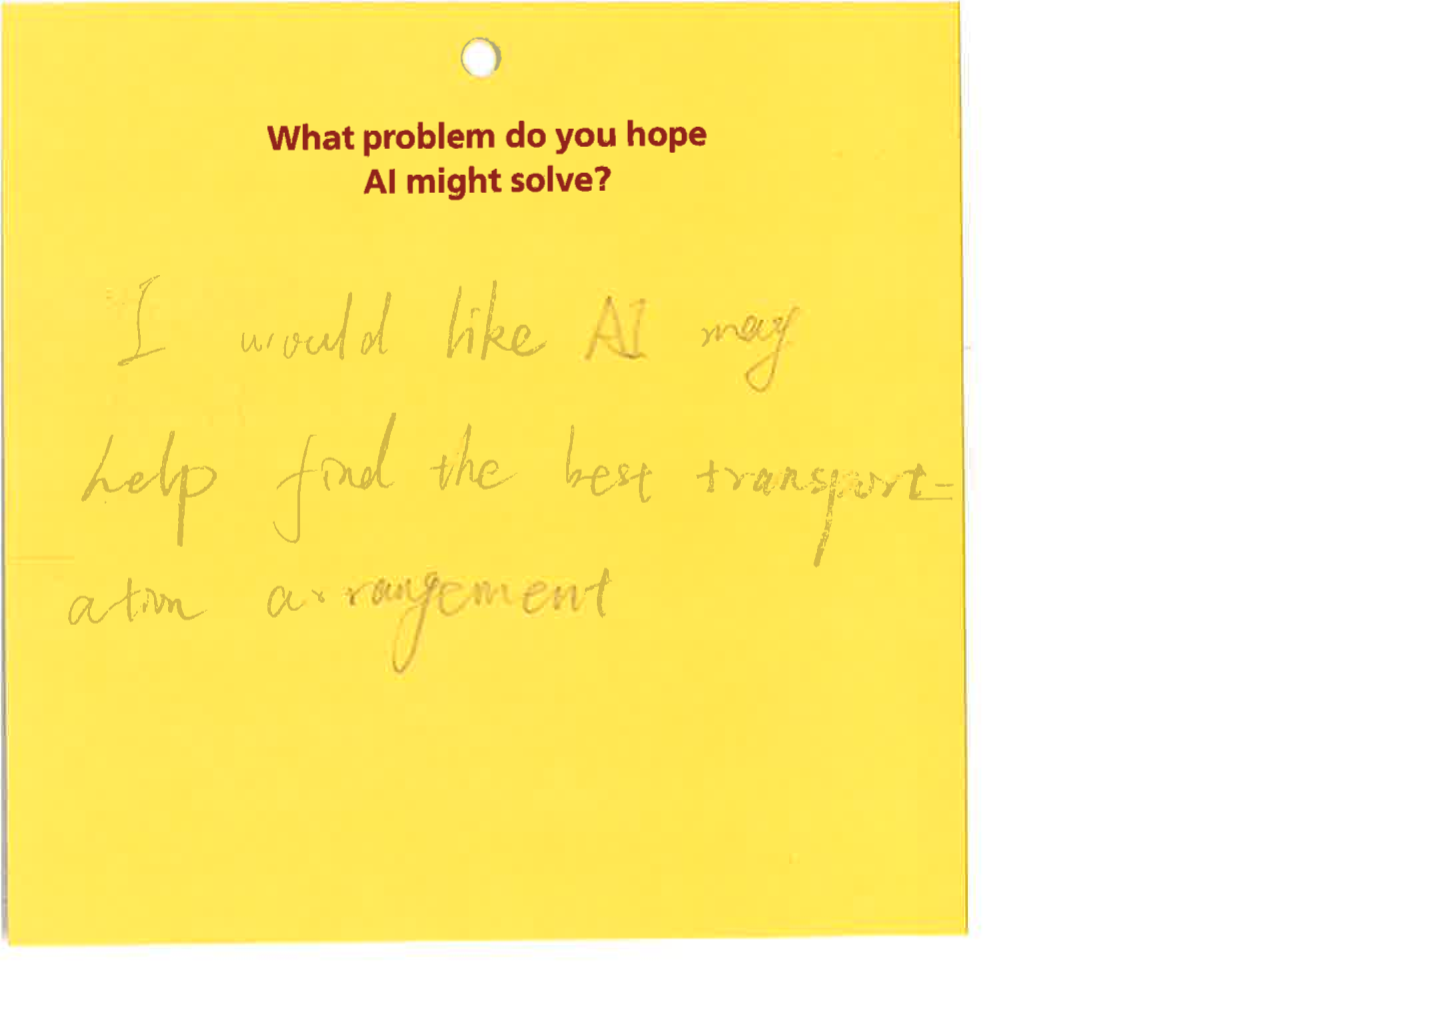 What problem do you hope
AI might solve?
I would like AI may
help find the best transport-
ation arrangement